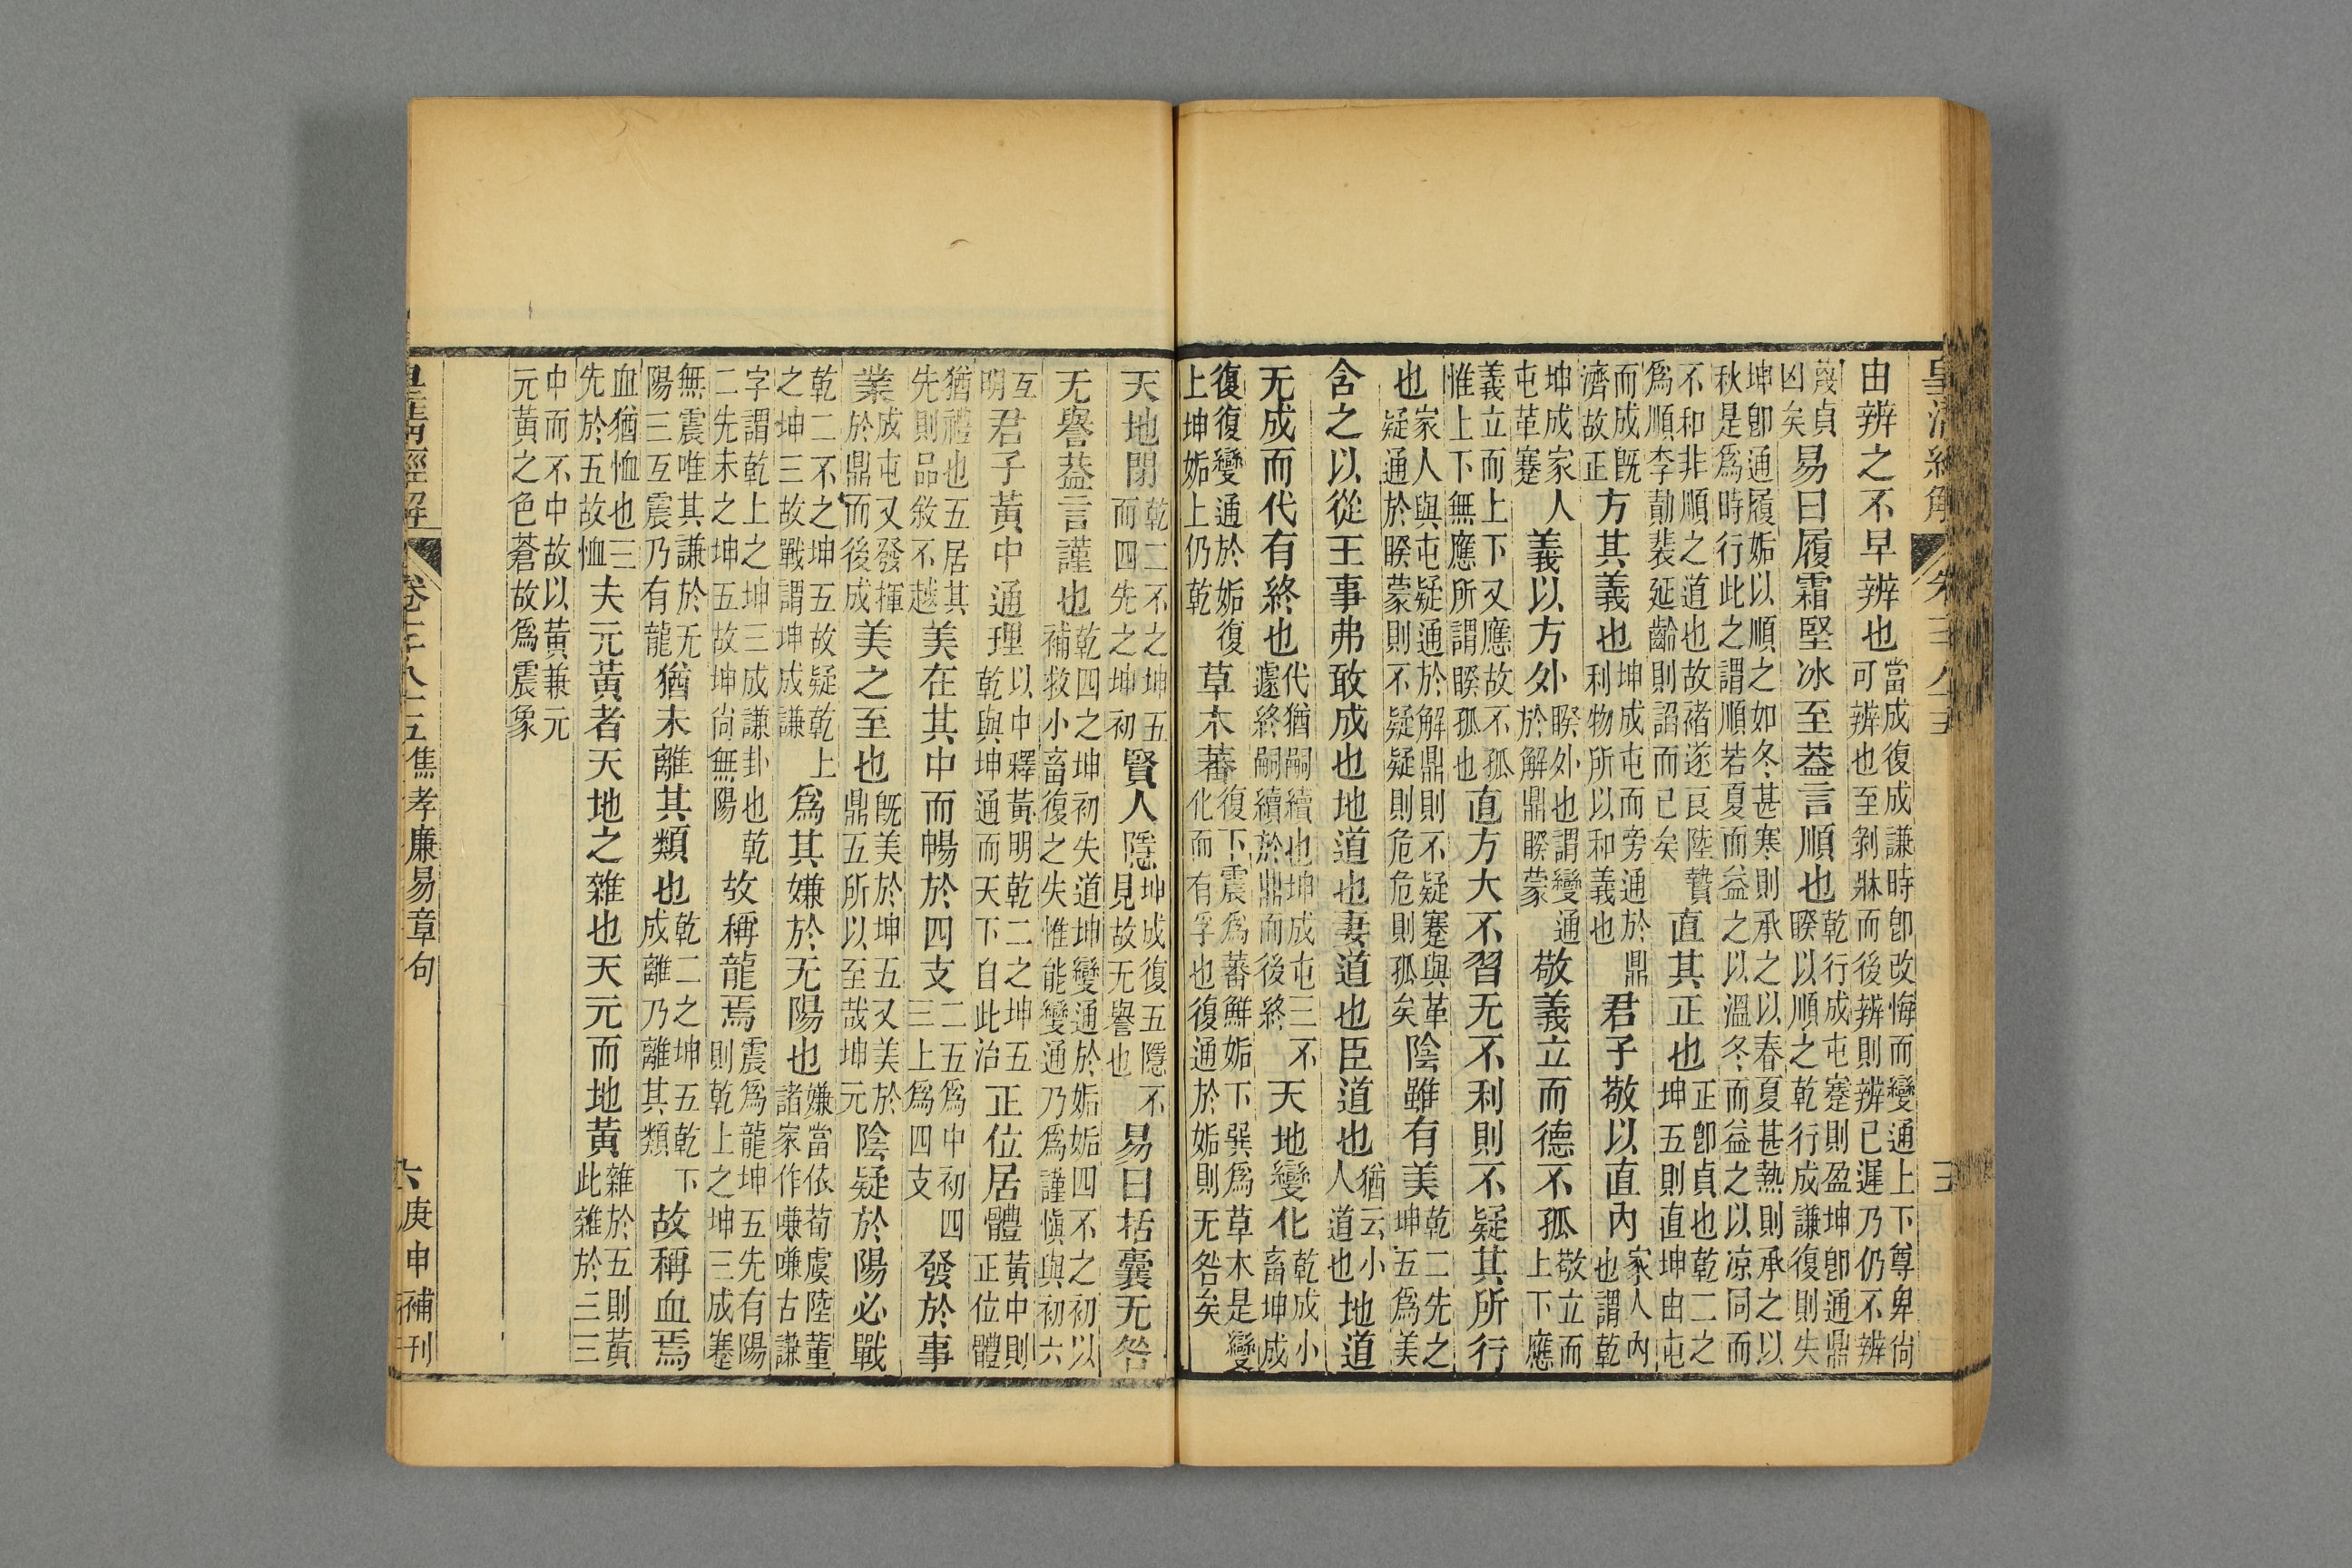 皇清經解 三
由辨之不早辨也當成復成謙時卽改悔而變通上下尊卑尚可辨也至剝牀而後辨則辨已遲乃仍不辨
蔑貞凶矣易曰履霜堅冰至葢言順也乾行成屯蹇則盈坤卽通鼎睽以順之乾行成謙復則失
坤卽通履姤以順之如冬甚寒則承之以春夏甚熱則承之以秋是爲時行此之謂順若夏而益之以溫冬而益之以凉同而
不和非順之道也故褚遂良陸贄爲順李勣裴延齡則諂而已矣直其正也正卽貞也乾二之坤五則直坤由屯
而成旣濟故正方其義也坤成屯而旁通於鼎利物所以和義也君子敬以直內家人內也謂乾
坤成家人屯革蹇義以方外睽外也謂變通於解鼎睽蒙敬義立而德不孤敬立而上下應
義立而上下又應故不孤惟上下無應所謂睽孤也直方大不習无不利則不疑其所行
也家人與屯疑通於解鼎則不疑蹇與革疑通於睽蒙則不疑疑則危危則孤矣陰雖有美乾二先之坤五爲美
含之以從王事弗敢成也地道也妻道也臣道也猶云小人道也地道
无成而代有終也代猶嗣續也坤成屯三不遽終嗣續於鼎而後終天地變化乾成小畜坤成
復復變通於姤復上坤姤上仍乾草木蕃復下震爲蕃鮮姤下巽爲草木是變化而有孚也復通於姤則无咎矣
天地閉乾二不之坤五而四先之坤初賢人隱坤成復五隱不見故无譽也易曰括囊无咎
无譽葢言謹也乾四之坤初失道坤變通於姤姤四不之初以補救小畜復之失惟能變通乃爲謹愼與初六
互明君子黃中通理以中釋黃明乾二之坤五乾與坤通而天下自此治正位居體黃中則正位體
猶禮也五居其先則品敘不越美在其中而暢於四支二五爲中初四三上爲四支發於事
業成屯又發揮於鼎而後成美之至也旣美於坤五又美於鼎五所以至哉坤元陰疑於陽必戰
乾二不之坤五故疑乾上之坤三故戰謂坤成謙爲其嫌於无陽也嫌當依荀虞陸董諸家作嗛嗛古謙
字謂乾上之坤三成謙卦也乾二先未之坤五故坤尚無陽故稱龍焉震爲龍坤五先有陽則乾上之坤三成蹇
無震唯其謙於无陽三互震乃有龍猶未離其類也乾二之坤五乾下成離乃離其類故稱血焉
血猶恤也三先於五故恤夫元黃者天地之雜也天元而地黃雜於五則黃此雜於三三
中而不中故以黃兼元元黃之色蒼故爲震象
皇清經解 卷千八十五焦孝廉易章句 六 庚申補刊